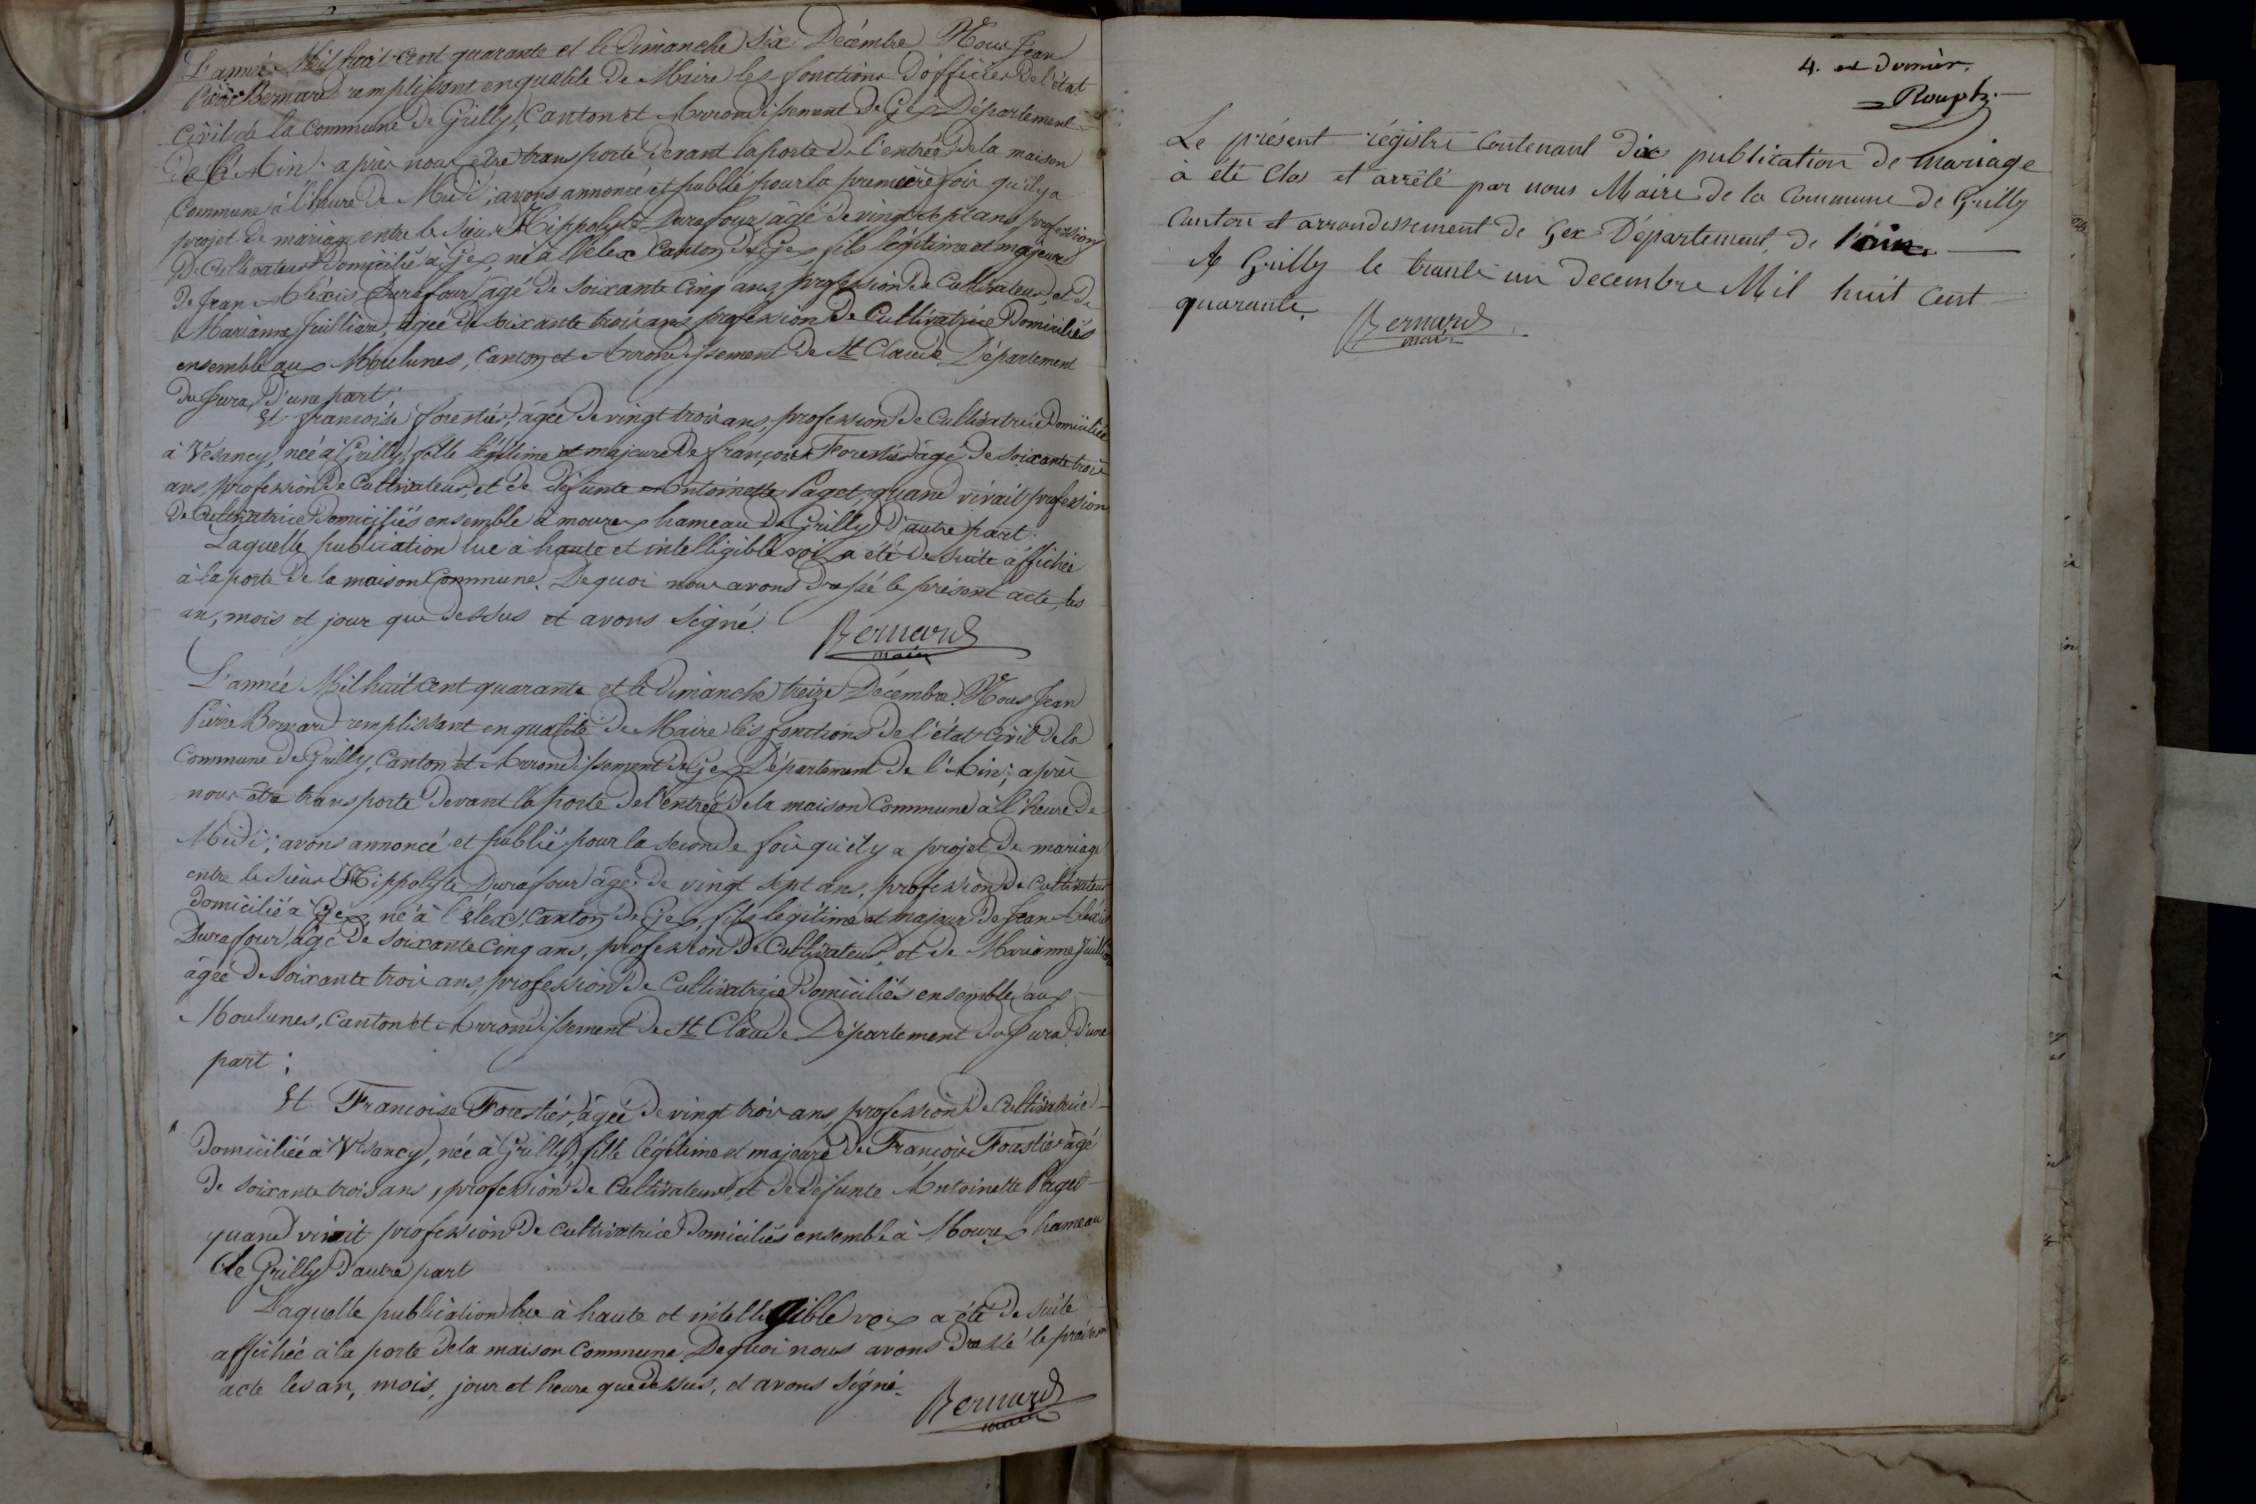 L'année Mil huit cent quarante et le Dimanche Six Décembre Nous Jean
Pierre Bernard remplissant en qualité de Maire les fonctions d'officier de l'état
civil de la commune de Grilly, canton et Arrondissement de Gex Département
de l'Ain; après nous être transporté devant la porte de l'entrée de la maison
commune à l'heure de Midi; avons annoncé et publié pour la première fois qu'il y a
projet de mariage entre le sieur Hippolyte Durafour, âgé de vingt sept ans, profession
de cultivateur domicilié à Gex, né à Lélex canton de Gex fils légitime et majeur
de Jean Aléxis Durafour âgé de soixante cinq ans, profession de cultivateur, et de
Marianne Juillard, âgée de soixante trois ans profession de Cultivatrice Domiciliés
ensemble aux Moulunes, canton et Arrondissement de St Claude Département
du Jura, d'une part;
Et francoise forestier, âgée de vingt trois ans, profession de cultivatrice Domiciliée
à Vésancy, née à Grilly, fille légitime et majeure de françois Forestier âgé de soixante trois
ans, profession de cultivateur, et de défunte Antoinette Paget, quand vivait profession
de cultivatrice Domiciliés ensemble à mourex hameau de Grilly d'autre part.
Laquelle publication lue à haute et intelligible voix a été de suite affichée
à la porte de la maison commune. De quoi nous avons dressé le présent acte, les
an, mois et jour que dessus et avons signé.
Bernard
maire
L'année Mil huit cent quarante et le Dimanche treize Décembre. Nous Jean
Pierre Bernard remplissant en qualité de Maire les fonctions de l'état civil de la
commune de Grilly, canton et Arrondissement de Gex Département de l'Ain; après
nous être transporté devant la porte de l'entrée de la maison commune à l'heure de
Midi; avons annoncé et publié pour la seconde fois qu'il y a projet de mariage
entre le sieur Hippolyte Durafour âgé de vingt sept ans, profession de cultivateur
domicilié à Gex, né à Lélex, canton de Gex, fils légitime et majeur de Jean Aléxis
Durafour, âgé de soixante cinq ans, profession de cultivateur, et de Marianne Juillard
âgée de soixante trois ans, profession de cultivatrice Domiciliés ensemble aux
Moulunes, canton et Arrondissement de St Claude Département du Jura, d'une
part;
Et Francoise Forestier, âgée de vingt trois ans, profession de cultivatrice
Domiciliée à Vesancy, née à Grilly, fille légitime et majeure de François Forestier âgé
de soixante trois ans, profession de cultivateur, et de défunte Antoinette Paget
quand vivait profession de cultivatrice Domiciliés ensemble à Mourex hameau
de Grilly d'autre part
Laquelle publication lue à haute et intelligible voix a été de suite
affichée à la porte de la maison commune. De quoi nous avons dressé le présent
acte les an, mois, jour et heure que dessus, et avons signé.
Bernard
maire
4. et dernier.
Rouph
Le présent régistre contenant dix publication de mariage
à été clos et arrêté par nous Maire de la commune de Grilly
canton et arrondissement de Gex Département de l'ain.
A Grilly le trente un decembre Mil huit cent
quarante.
Bernard
maire